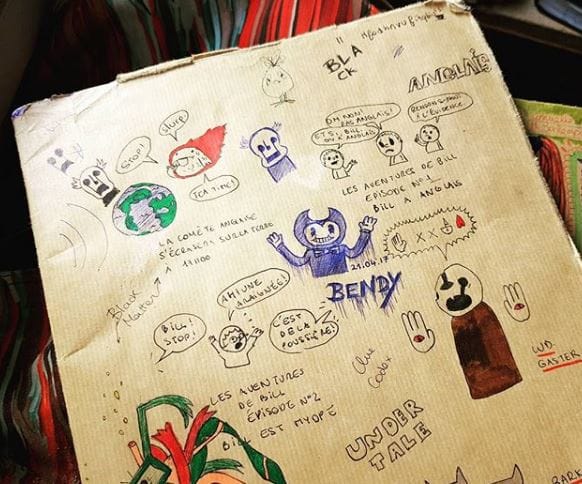 BLA
CK
ANGLAIS
STOP!
SLURP
TEA TIME!
OH NON!
PAS ANGLAIS!
ET SI, BILL.
ON A ANGLAIS
RENDONS-NOUS
À L'ÉVIDENCE.
LES AVENTURES DE BILL
EPISODE N°1
BILL A ANGLAIS
LA COMÈTE ANGLAISE
S'ÉCRASERA SUR LA TERRE
À 11H00
Black
Matter
21.04.17
BENDY
AH! UNE
ARAIGNÉE!
BILL!
STOP!
C'EST
DE LA
POUSSIÈRE!
LES AVENTURES
DE BILL
ÉPISODE N°2
BILL EST MYOPE
XX
WD.
GASTER
UNDER
TALE